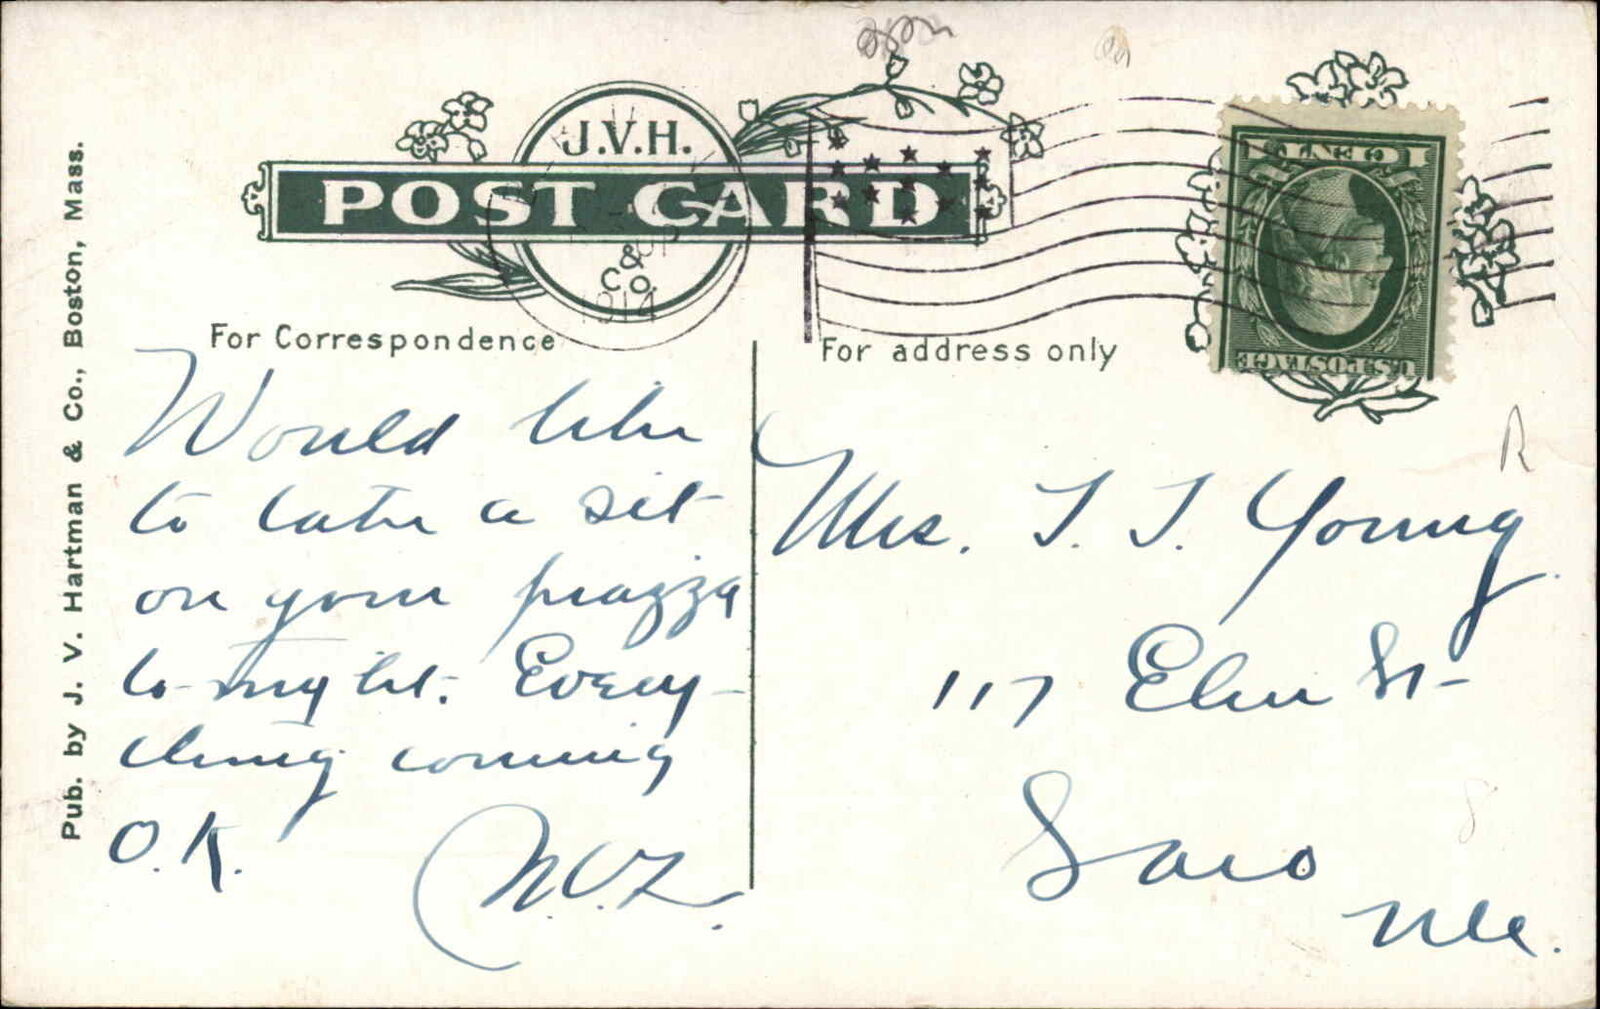 J.V.H.
POST CARD
& Co.
1914
1 CENT 1
U.S. POSTAGE
For Correspondence
For address only
Would like
to take a sit
on your piazza
to-night. Every-
thing coming
O.K.
Mrs. T. T. Young
117 Elm St-
Saco
Me.
Pub. by J. V. Hartman & Co., Boston, Mass.